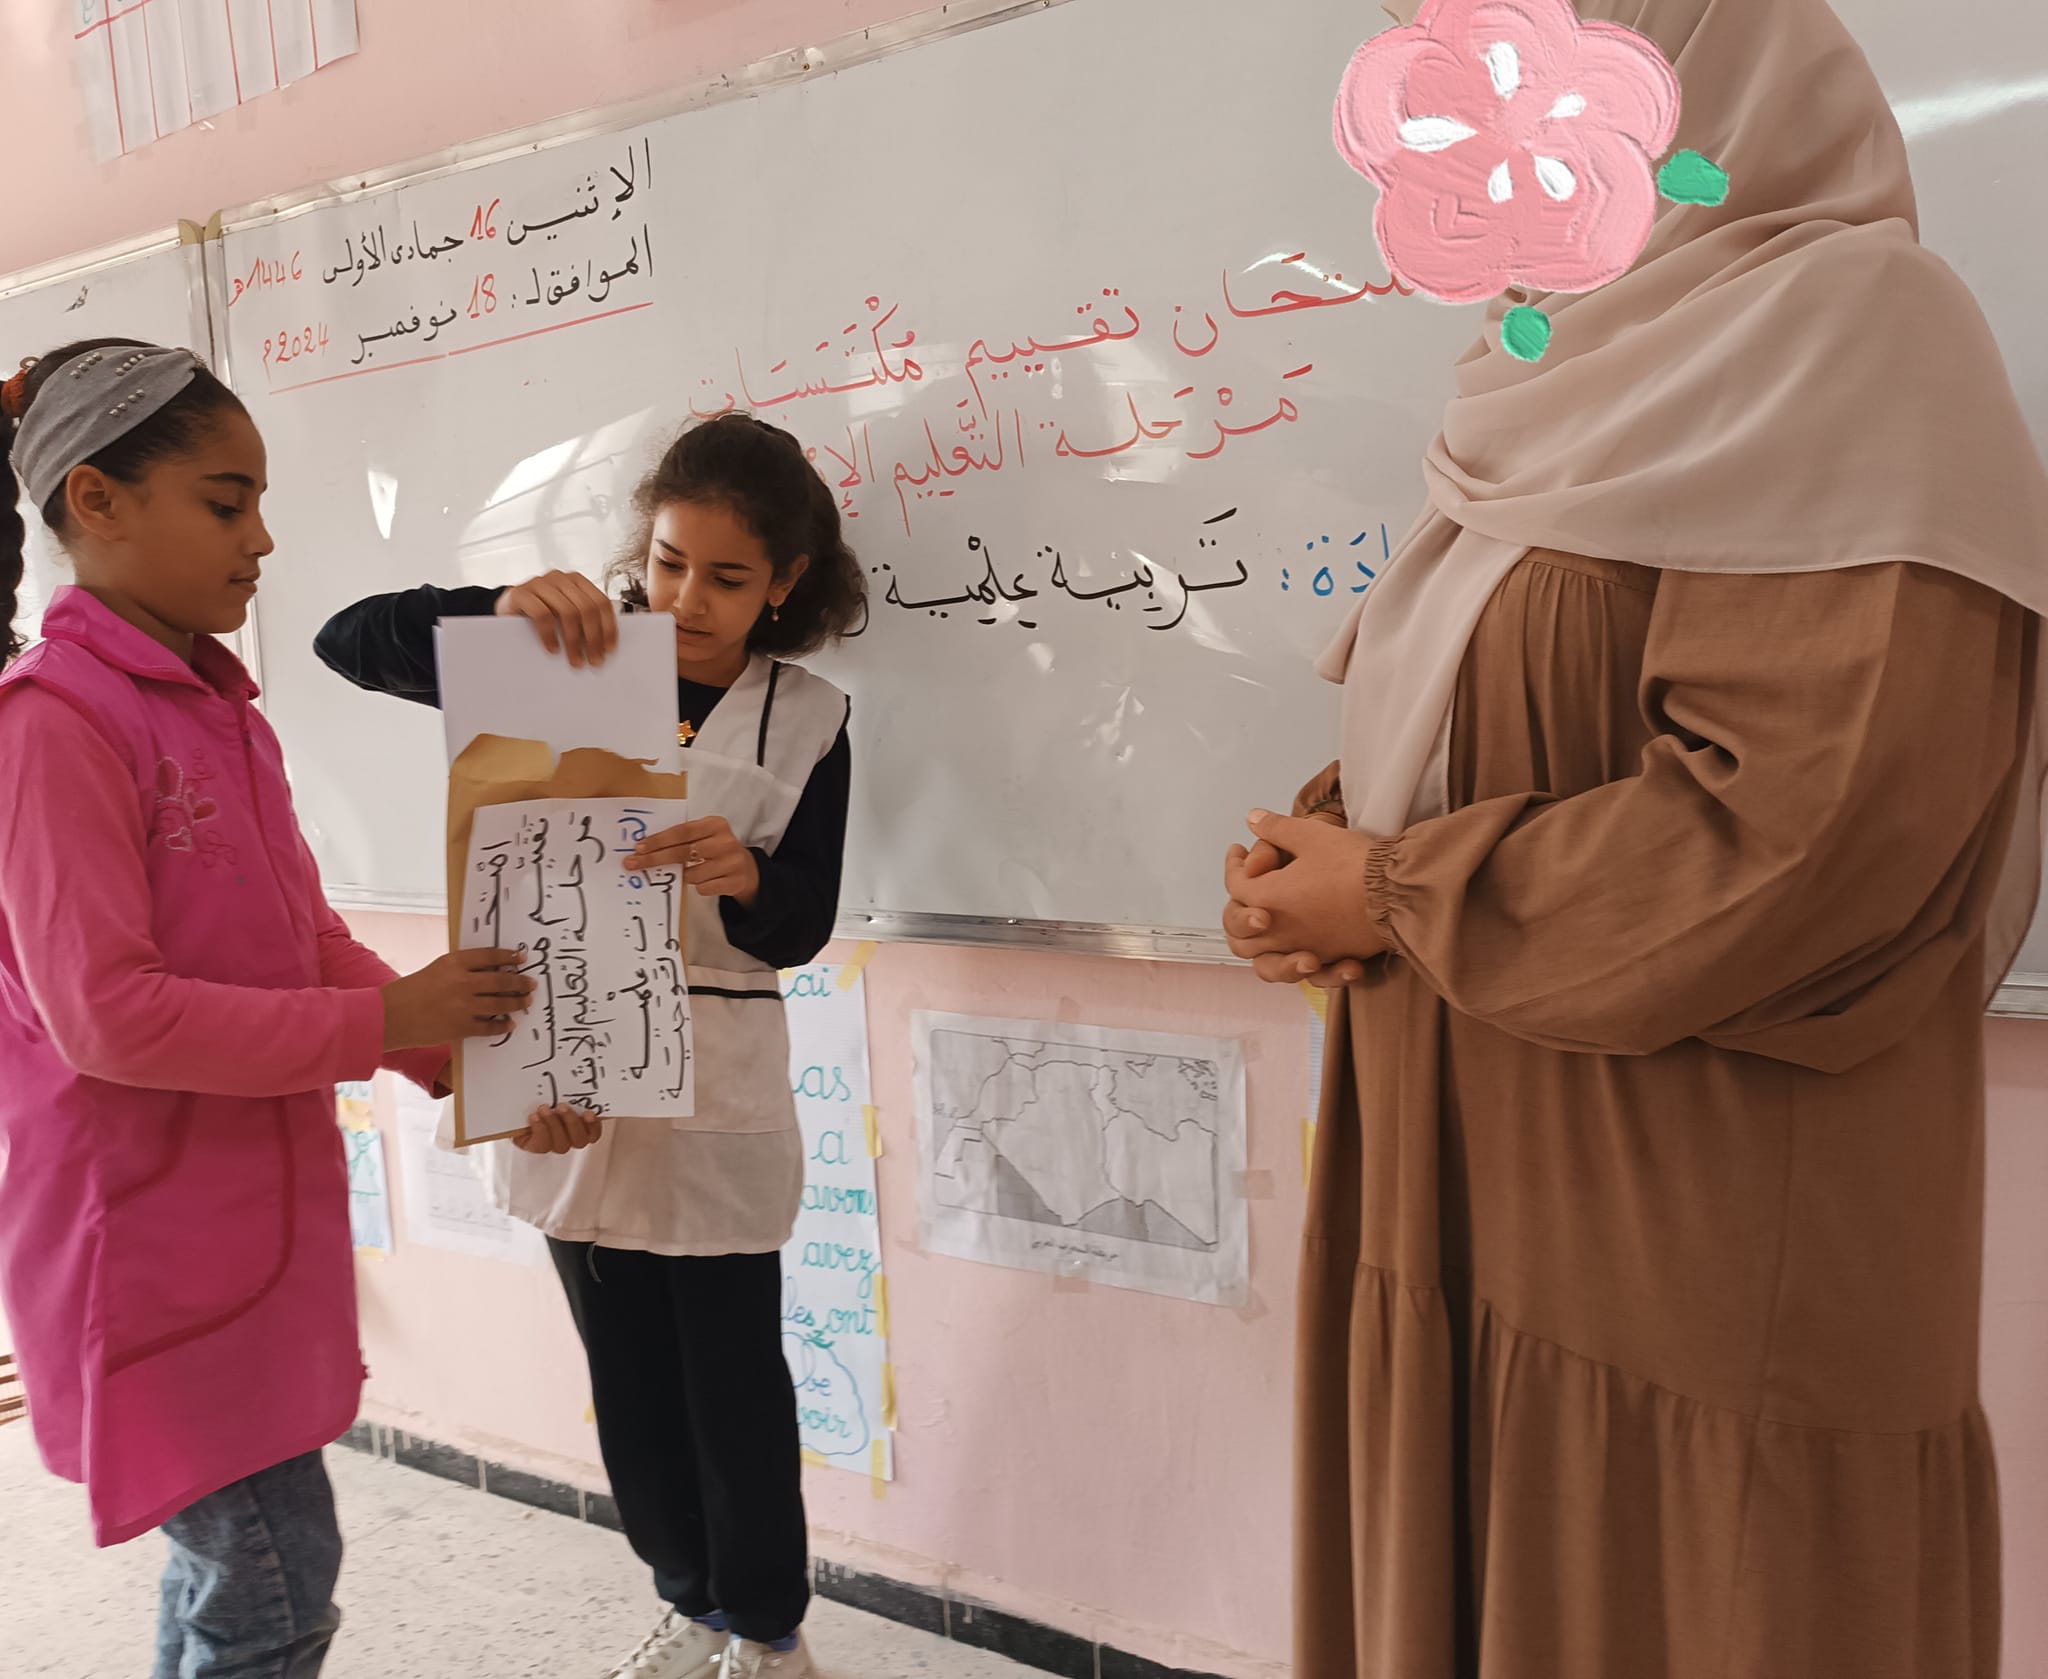 الإثنين 16 جمادى الأولى 1446هـ
الموافق لـ: 18 نوفمبر 2024م
تقييم مُكْتَسَبَات
مَرْحَلة التَّعليم
تَربية عِلْمية
امْتِحَان
تقييم مكتسبات
مَرحلة التعليم الإبتدائي
ت. علمية
تكنولوجية
ai
as
a
avons
avez
ont